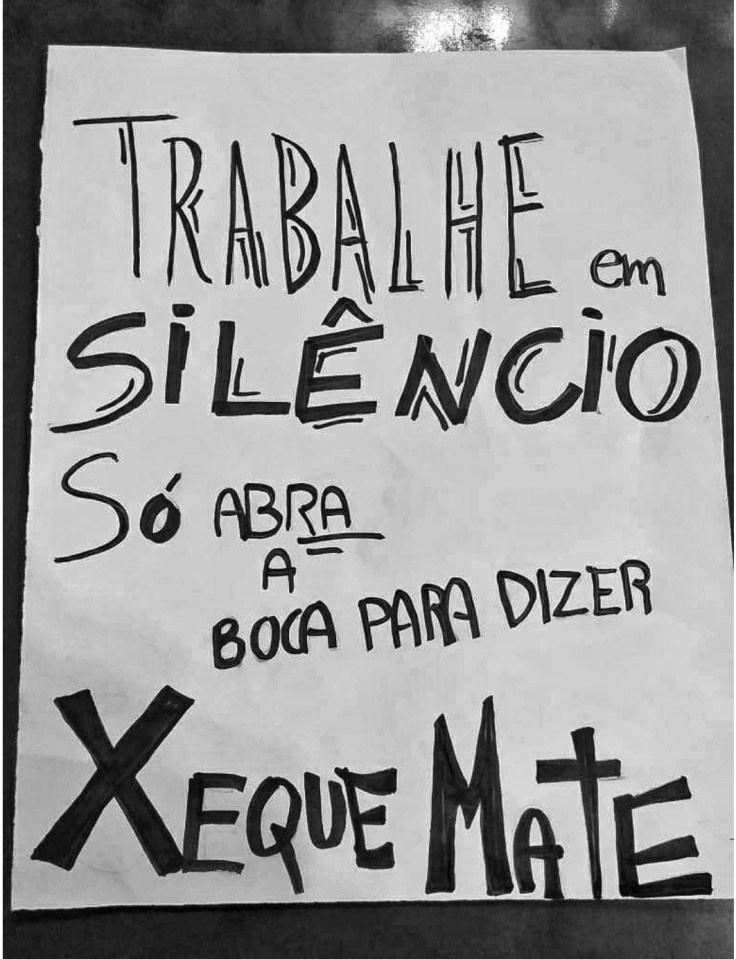 TRABALHE em
SiLÊNCiO
Só ABRA
A
BOCA PARA DIZER
XEQUE MATE